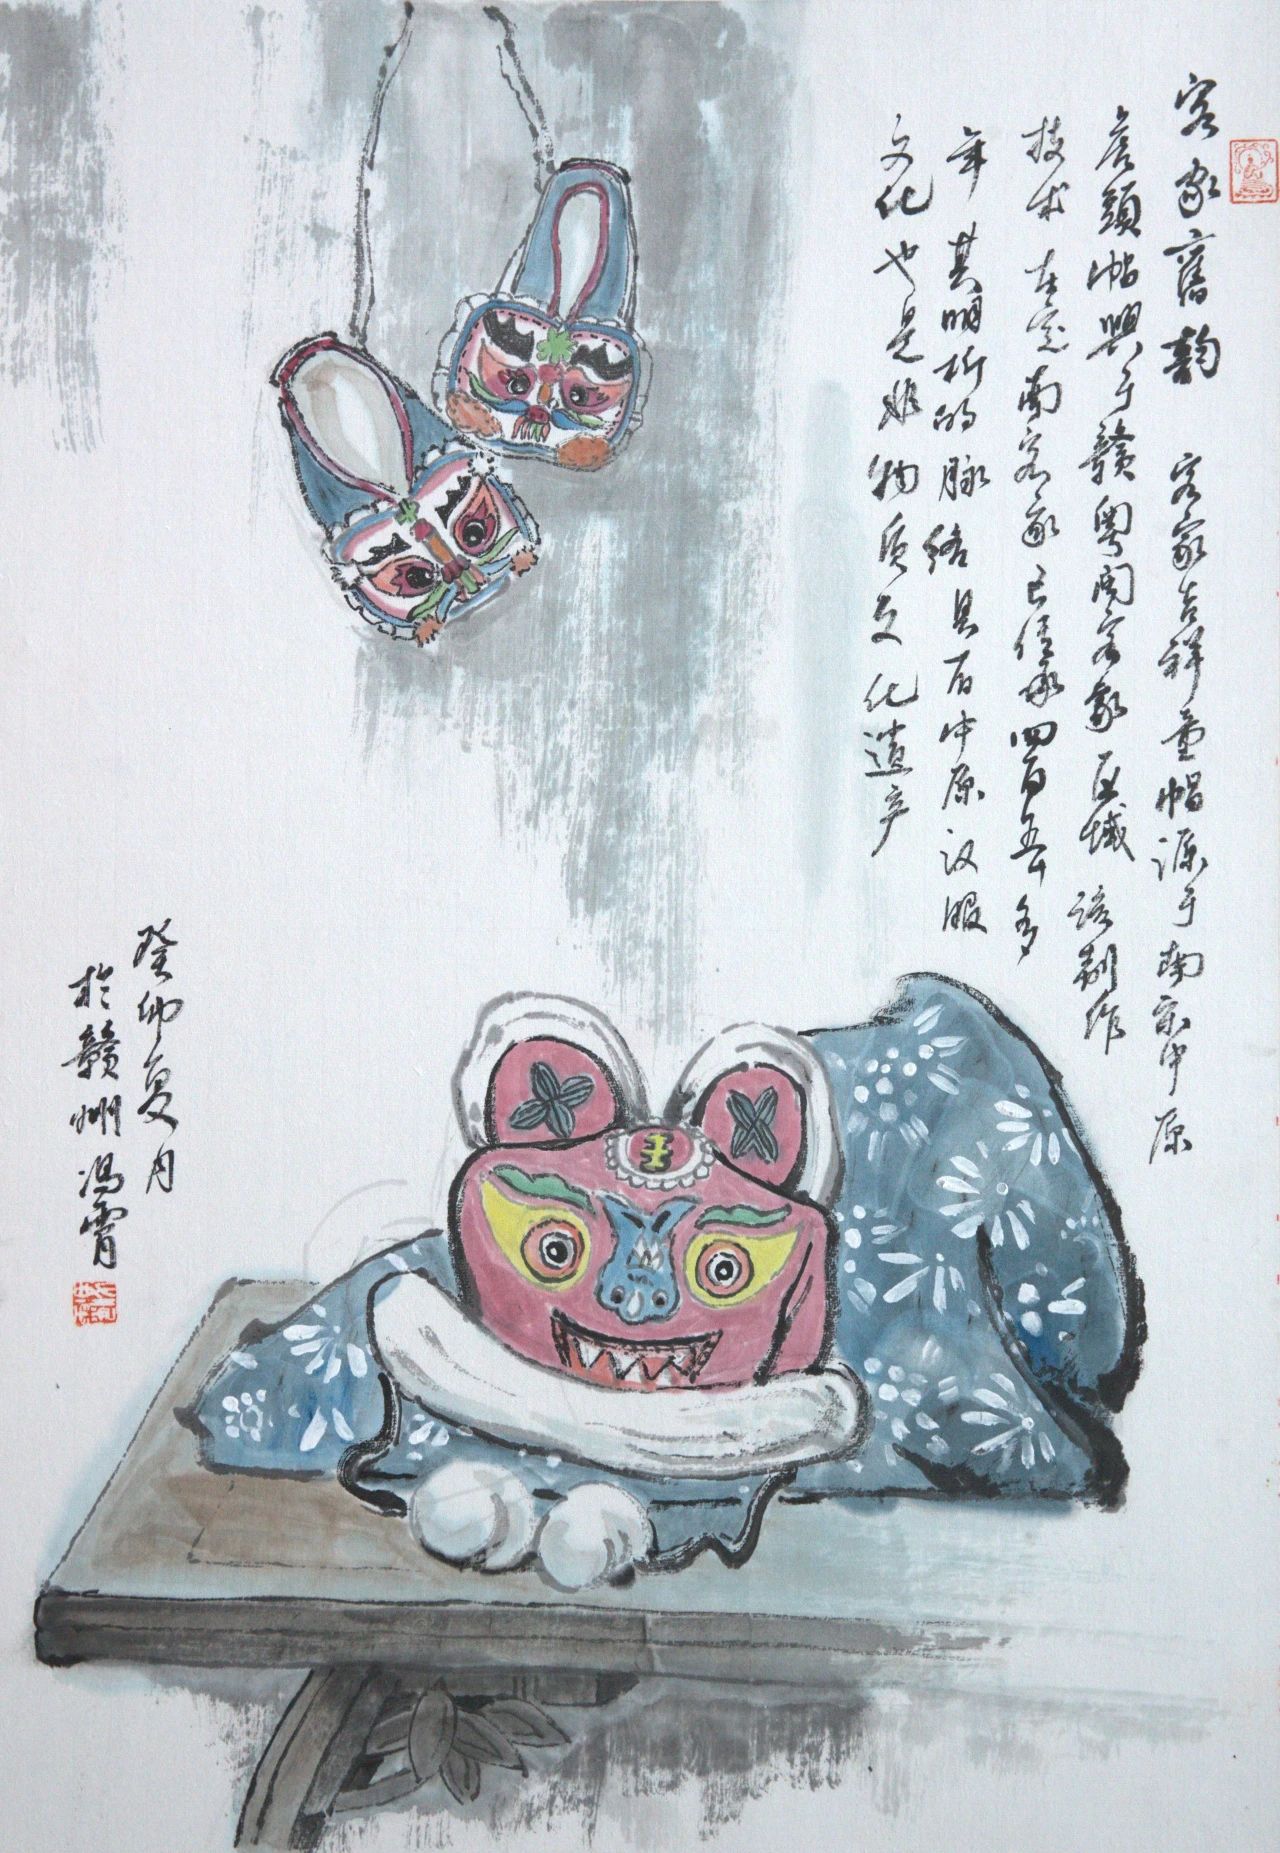 客家舊韵 客家吉祥童帽源于南宋中原
虎頭帽興于贛粤闽客家区域 该制作
技术在定南客家已传承四百五十多
年 其明晰的脉络具有中原汉服
文化也是非物质文化遗产
癸卯夏月
於贛州 冯霄